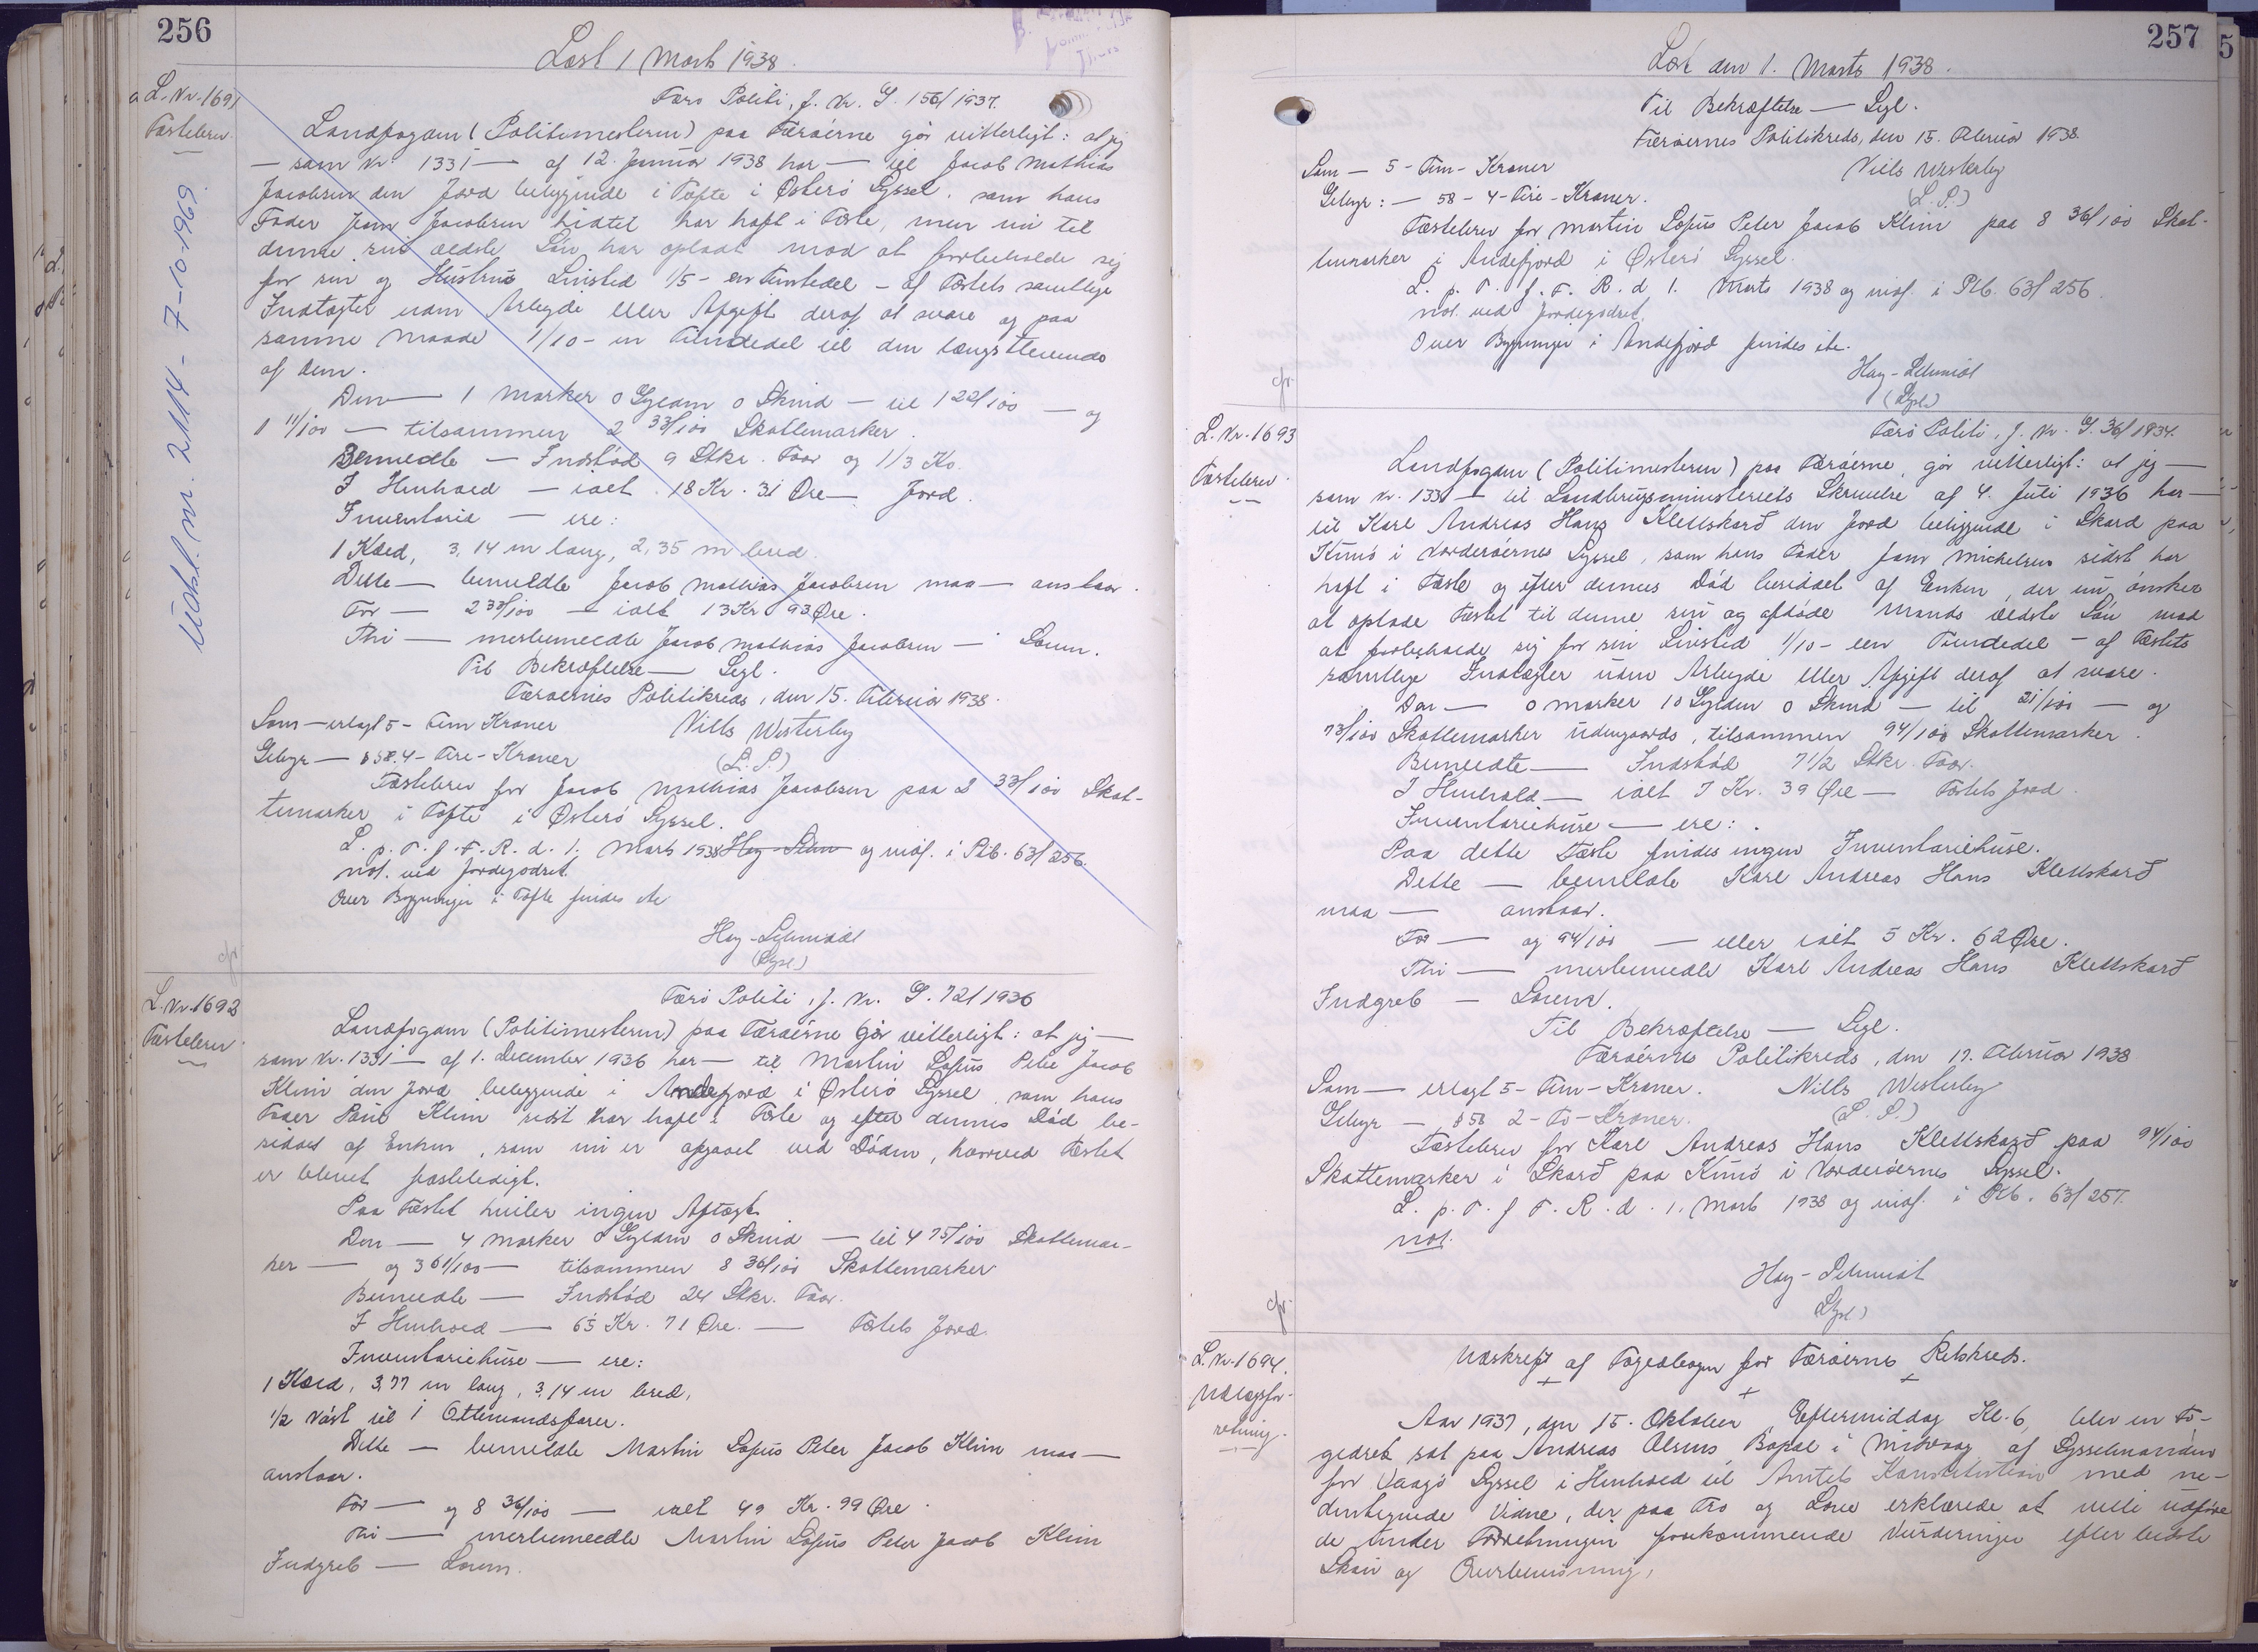 256
Læst 1 Marts 1938.
L. Nr. 1691
Fæstebrev.
Udst. nr. 2114 - 7-10-1969.
Færø Politi, J. Nr. G. 156/1937.
Landfogden (Politimesteren) paa Færøerne gør vitterligt: at jeg
— som Nr. 1331 — af 12. Januar 1938 har — til Jacob Mathias
Jacobsen den Jord beliggende i Tofte i Østerø Syssel, som hans
Fader Joen Jacobsen hidtil har haft i Fæste, men nu til
denne sin ældste Søn har opladt mod at forbeholde sig
for sin og Hustrus Livstid 1/5 - en Femtedel - af Fæstets samtlige
Indtægter uden Arbejde eller Afgift deraf at svare og paa
samme Maade 1/10 - en Tiendedel til den længstlevende
af dem.
Den — 1 Marker 0 Gylden 0 Skind — til 1 22/100 — og
1 11/100 — tilsammen 2 33/100 Skattemarker.
Bemeldte — Indstød 9 Stkr. Faar og 1/3 Ko.
I Henhold — ialt 18 Kr. 31 Øre — Jord.
Inventarie — ere:
1 Hæld, 3,14 m lang, 2,35 m bred.
Dette — bemeldte Jacob Mathias Jacobsen maa — anstaar.
For — 2 33/100 — ialt 13 Kr 93 Øre.
Thi — merbemeldte Jacob Mathias Jacobsen — Loven.
Til Bekræftelse — Segl.
Færøernes Politikreds, den 15. Februar 1938.
Som — erlagt 5 - Fem Kroner
Niels Westerby
Gebyr — § 58. 4 - Fire - Kroner
(L. S.)
Fæstebrev for Jacob Mathias Jacobsen paa 2 33/100 Skat-
temarker i Tofte i Østerø Syssel.
L. p. T. f. F. R. d. 1. Marts 1938 og indf. i Ptb. 63/256.
not. ved Jordegodset.
Over Bygninger i Tofte findes ikke
Hay-Schmidt
(Styrl.)
cfr.
L. Nr. 1692
Fæstebrev
Færø Politi, J. Nr. G. 72/1936
Landfogden (Politimesteren) paa Færøerne gør vitterligt: at jeg —
som Nr. 1331 — af 1. December 1936 har — til Martin Sofus Peter Jacob
Klein den Jord beliggende i Andefjord i Østerø Syssel, som hans
Fader Poul Klein sidst har haft i Fæste og efter dennes Død be-
siddet af Enken, som nu er afgaaet ved Døden, hvorved Fæstet
er blevet fæsteledigt.
Paa Fæstet hviler ingen Aftægt.
Den — 4 Marker 0 Gylden 0 Skind — til 4 75/100 Skattemar-
ker — og 3 61/100 — tilsammen 8 36/100 Skattemarker
Bemeldte — Indstød 24 Stkr. Faar.
I Henhold — 65 Kr. 71 Øre. — Fæstets Jord.
Inventariehuse — ere:
1 Hæld, 3,77 m lang, 3,14 m bred,
1/2 Nøst til 1 Ottemandsfarer.
Dette — bemeldte Martin Sofus Peter Jacob Klein maa —
anstaar.
For — og 8 36/100 — ialt 49 Kr. 99 Øre.
Thi — merbemeldte Martin Sofus Peter Jacob Klein
Indgreb — Loven.
257
Læst den 1. Marts 1938.
Til Bekræftelse — Segl.
Færøernes Politikreds, den 15. Februar 1938.
Som — 5 - Fem - Kroner
Niels Westerby
Gebyr: — 58 - 4 - Fire - Kroner.
(L. S.)
Fæstebrev for Martin Sofus Peter Jacob Klein paa 8 36/100 Skat-
temarker i Andefjord i Østerø Syssel.
L. p. T. f. F. R. d. 1. Marts 1938 og indf. i Ptb. 63/256.
not. ved Jordegodset.
Over Bygninger i Andefjord findes ikke.
Hay-Schmidt
(Styrl.)
cfr.
L. Nr. 1693
Fæstebrev.
Færø Politi, J. Nr. G. 36/1934.
Landfogden (Politimesteren) paa Færøerne, gør vitterligt: at jeg —
som Nr. 1331 — til Landbrugsministeriets Skrivelse af 4. Juli 1936 har —
til Karl Andreas Hans Klettskarð den Jord beliggende i Skard paa
Kunø i Norderøernes Syssel, som hans Fader Joen Michelsen sidst har
haft i Fæste og efter dennes Død besiddet af Enken, der nu ønsker
at oplade Fæstet til denne sin og afdøde Mands ældste Søn mod
at forbeholde sig for sin Livstid 1/10 - een Tiendedel - af Fæstets
samtlige Indtægter uden Arbejde eller Afgift deraf at svare.
Den — 0 Marker 10 Gylden 0 Skind — til 21/100 — og
73/100 Skattemarker udengaards, tilsammen 94/100 Skattemarker.
Bemeldte — Indstød 7 1/2 Stkr. Faar.
I Henhold — ialt 7 Kr. 39 Øre — Fæstets Jord.
Inventariehuse — ere:
Paa dette Fæste findes ingen Inventariehuse.
Dette — bemeldte Karl Andreas Hans Klettskarð
maa — anstaar.
For — og 94/100 — eller ialt 5 Kr. 62 Øre.
Thi — merbemeldte Karl Andreas Hans Klettskarð
Indgreb — Loven.
Til Bekræftelse — Segl.
Færøernes Politikreds, den 17. Februar 1938
Som — erlagt 5 - Fem - Kroner.
Niels Westerby
Gebyr — § 58 2 - To - Kroner.
(L. S.)
Fæstebrev for Karl Andreas Hans Klettskarð paa 94/100
Skattemarker i Skarð paa Kunø i Norderøernes Syssel.
L. p. T. f. F. R. d. 1. Marts 1938 og indf. i Ptb. 63/257.
not.
Hay-Schmidt
(Styrl.)
cfr.
L. Nr. 1694.
Udlægsfor-
retning.
Udskrift af Fogedbogen for Færøernes Retskreds.
Aar 1937, den 15. Oktober Eftermiddag Kl. 6, blev en Fo-
gedret sat paa Andreas Olsens Bopæl i Midvaag af Sysselmanden
for Vaagø Syssel i Henhold til Amtets Konstitution med ne-
dentegnede Vidne, der paa Tro og Love erklærede at ville udføre
de under Forretningen forekommende Vurderinger efter bedste
Skøn og Overbevisning,